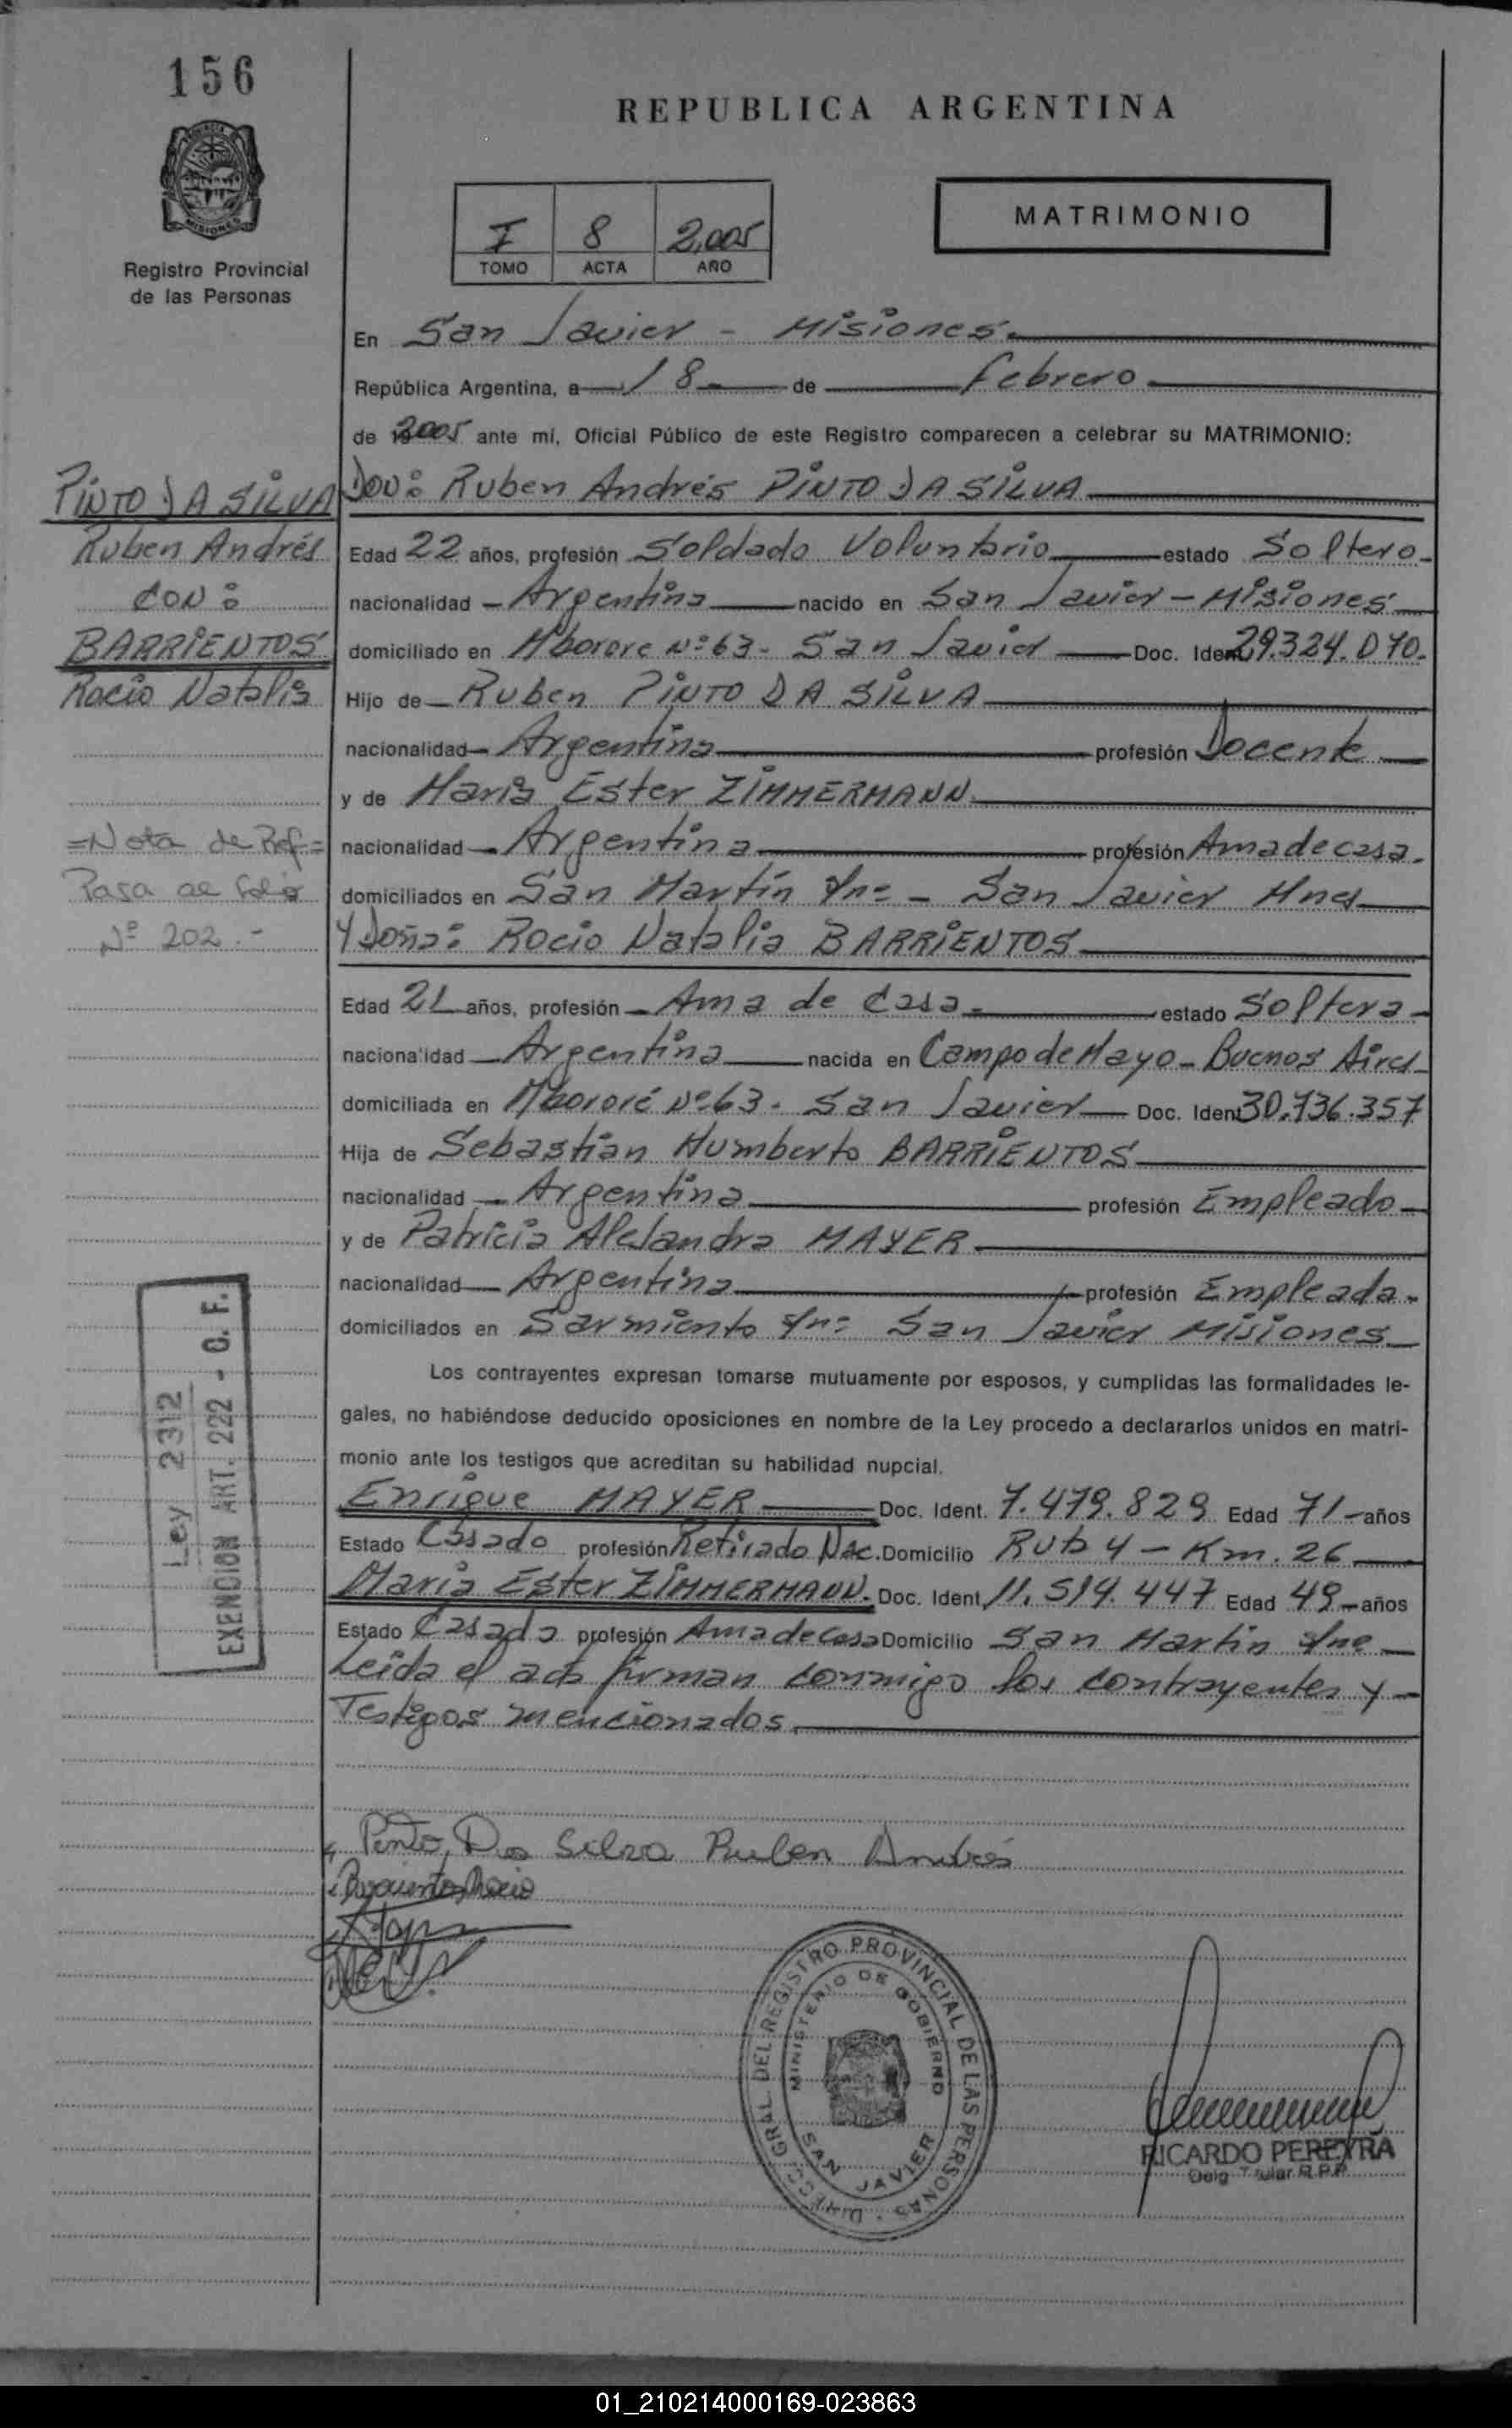 156
REPUBLICA ARGENTINA
MATRIMONIO
I 8 2.005
TOMO ACTA AÑO
Registro Provincial
de las Personas
En San Javier - Misiones.
República Argentina, a 18 de febrero
de 2005 ante mí, Oficial Público de este Registro comparecen a celebrar su MATRIMONIO:
PINTO DA SILVA
Ruben Andrés
CON:
BARRIENTOS
Rocio Natalia
=Nota de Ref=
Pasa al folio
Nº 202.-
Don: Ruben Andrés PINTO DA SILVA
Edad 22 años, profesión Soldado Voluntario estado Soltero
nacionalidad Argentina nacido en San Javier - Misiones
domiciliado en Mborore Nº 63 - San Javier Doc. Iden 29.324.070.
Hijo de Ruben PINTO DA SILVA
nacionalidad Argentina profesión Docente
y de Maria Ester ZIMMERMANN
nacionalidad Argentina profesión Ama de casa.
domiciliados en San Martín s/nº - San Javier Mnes
Y Doña: Rocio Natalia BARRIENTOS
Edad 21 años, profesión Ama de Casa. estado Soltera
nacionalidad Argentina nacida en Campo de Mayo - Buenos Aires
domiciliada en Mbororé Nº 63 - San Javier Doc. Ident 30.736.357
Hija de Sebastian Humberto BARRIENTOS
nacionalidad Argentina profesión Empleado
y de Patricia Alejandra MAYER
nacionalidad Argentina profesión Empleada.
domiciliados en Sarmiento s/nº San Javier Misiones
Los contrayentes expresan tomarse mutuamente por esposos, y cumplidas las formalidades le-
gales, no habiéndose deducido oposiciones en nombre de la Ley procedo a declararlos unidos en matri-
monio ante los testigos que acreditan su habilidad nupcial.
Enrique MAYER Doc. Ident. 7.479.829 Edad 71 años
Estado Casado profesión Retirado Nac. Domicilio Ruta 4 - Km. 26
Maria Ester ZIMMERMANN. Doc. Ident 11.514.447 Edad 49 años
Estado Casada profesión Ama de Casa Domicilio San Martin s/nº
Leida el acta firman conmigo los contrayentes y
Testigos mencionados.
Ley 2312
EXENCION ART. 222 - C. F.
Pinto Da Silva Ruben Andrés
Barrientos Rocio
DIRECC. GRAL. DEL REGISTRO PROVINCIAL DE LAS PERSONAS
MINISTERIO DE GOBIERNO
SAN JAVIER
RICARDO PEREYRA
Deleg. Titular R.P.P.
01_210214000169-023863